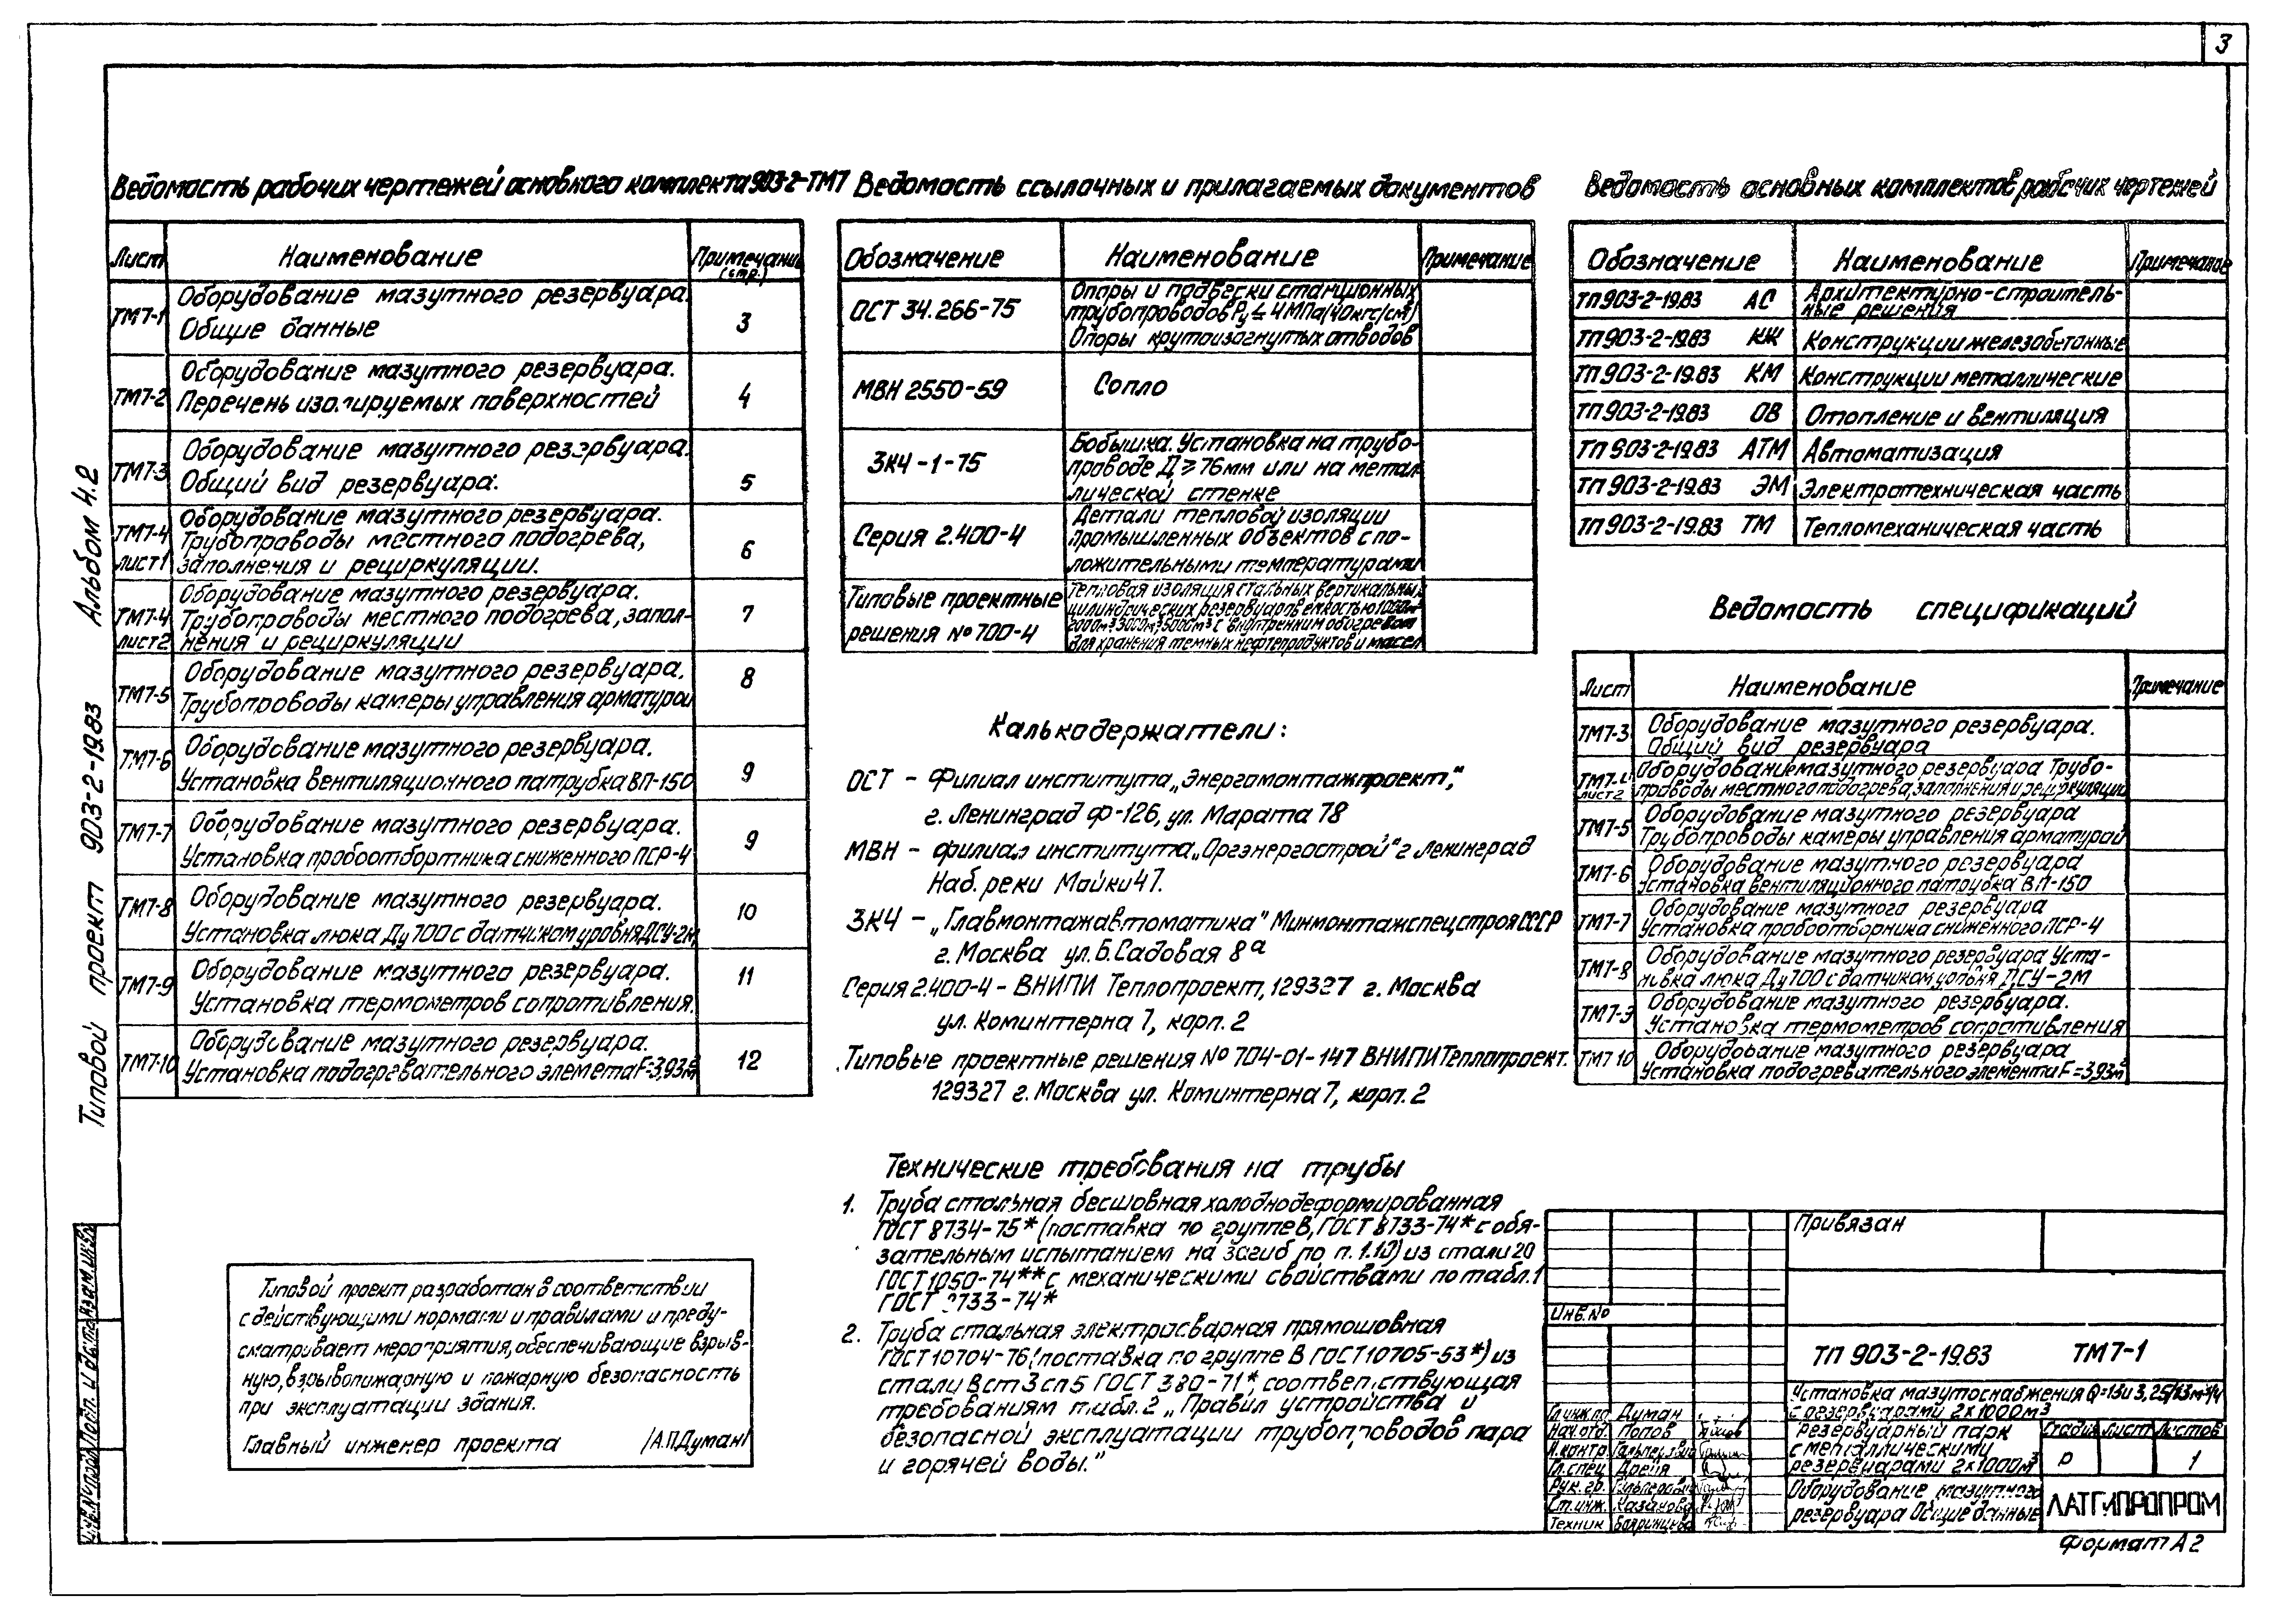 3
Альбом 4.2
Типовой проект 903-2-19.83
Ведомость рабочих чертежей основного комплекта 903-2-ТМ7
Лист
Наименование
Примечание (стр.)
ТМ7-1
Оборудование мазутного резервуара.
Общие данные
3
ТМ7-2
Оборудование мазутного резервуара.
Перечень изолируемых поверхностей
4
ТМ7-3
Оборудование мазутного резервуара.
Общий вид резервуара.
5
ТМ7-4 лист 1
Оборудование мазутного резервуара.
Трубопроводы местного подогрева,
заполнения и рециркуляции.
6
ТМ7-4 лист 2
Оборудование мазутного резервуара.
Трубопроводы местного подогрева, запол-
нения и рециркуляции
7
ТМ7-5
Оборудование мазутного резервуара.
Трубопроводы камеры управления арматурой
8
ТМ7-6
Оборудование мазутного резервуара.
Установка вентиляционного патрубка ВП-150
9
ТМ7-7
Оборудование мазутного резервуара.
Установка пробоотбортника сниженного ПСР-4
9
ТМ7-8
Оборудование мазутного резервуара.
Установка люка Ду 700 с датчиком уровня ДСУ-2М
10
ТМ7-9
Оборудование мазутного резервуара.
Установка термометров сопротивления.
11
ТМ7-10
Оборудование мазутного резервуара.
Установка подогревательного элемета F=3,93м²
12
Типовой проект разработан в соответствии
с действующими нормами и правилами и преду-
сматривает мероприятия, обеспечивающие взрыв-
ную, взрывопожарную и пожарную безопасность
при эксплуатации здания.
Главный инженер проекта /А.П.Думан/
Ведомость ссылочных и прилагаемых документов
Обозначение
Наименование
Примечание
ОСТ 34.266-75
Опоры и подвески станционных
трубопроводов Ру ≤ 4 МПа (40кгс/см²)
Опоры крутоизогнутых отводов
МВН 2550-59
Сопло
ЗК4-1-75
Бобышка. Установка на трубо-
проводе Д ≥ 76мм или на метал
лической стенке
Серия 2.400-4
Детали тепловой изоляции
промышленных объектов с по-
ложительными температурами
Типовые проектные
решения № 700-4
Тепловая изоляция стальных вертикальных
цилиндрических резервуаров емкостью 1000м³
2000м³, 3000м³, 5000м³ с внутренним обогревом
для хранения темных нефтепродуктов и масел
Калькодержатели:
ОСТ - Филиал института „Энергомонтажпроект,“
г. Ленинград Ф-126, ул. Марата 78
МВН - филиал института „Оргэнергострой“ г Ленинград
Наб. реки Мойки 47.
ЗК4 - „Главмонтажавтоматика“ Минмонтажспецстроя СССР
г. Москва ул. Б. Садовая 8а
Серия 2.400-4 - ВНИПИ Теплопроект, 129327 г. Москва
ул. Коминтерна 7, корп. 2
Типовые проектные решения № 704-01-147 ВНИПИ Теплопроект.
129327 г. Москва ул. Коминтерна 7, корп. 2
Технические требования на трубы
1. Труба стальная бесшовная холоднодеформированная
ГОСТ 8734-75* (поставка по группе В, ГОСТ 8733-74* с обя-
зательным испытанием на загиб по п. 1.10) из стали 20
ГОСТ 1050-74** с механическими свойствами по табл. 1
ГОСТ 8733-74*
2. Труба стальная электросварная прямошовная
ГОСТ 10704-76 (поставка по группе В ГОСТ 10705-63*) из
стали В ст 3 сп 5 ГОСТ 380-71*, соответствующая
требованиям табл. 2 „Правил устройства и
безопасной эксплуатации трубопроводов пара
и горячей воды.“
Ведомость основных комплектов рабочих чертежей
Обозначение
Наименование
Примечание
ТП 903-2-19.83 АС
Архитектурно-строитель-
ные решения
ТП 903-2-19.83 КЖ
Конструкции железобетонные
ТП 903-2-19.83 КМ
Конструкции металлические
ТП 903-2-19.83 ОВ
Отопление и вентиляция
ТП 903-2-19.83 АТМ
Автоматизация
ТП 903-2-19.83 ЭМ
Электротехническая часть
ТП 903-2-19.83 ТМ
Тепломеханическая часть
Ведомость спецификаций
Лист
Наименование
Примечание
ТМ7-3
Оборудование мазутного резервуара.
Общий вид резервуара
ТМ7-4 лист 2
Оборудование мазутного резервуара Трубо-
проводы местного подогрева, заполнения и рециркуляции
ТМ7-5
Оборудование мазутного резервуара
Трубопроводы камеры управления арматурой
ТМ7-6
Оборудование мазутного резервуара
Установка вентиляционного патрубка ВП-150
ТМ7-7
Оборудование мазутного резервуара
Установка пробоотборника сниженного ПСР-4
ТМ7-8
Оборудование мазутного резервуара Уста-
новка люка Ду 700 с датчиком уровня ДСУ-2М
ТМ7-9
Оборудование мазутного резервуара.
Установка термометров сопротивления
ТМ7 10
Оборудование мазутного резервуара
Установка подогревательного элемента F=3,93м²
Привязан
Инв. №
ТП 903-2-19.83 ТМ7-1
Установка мазутоснабжения Q=13 и 3,25/13 м³/ч
с резервуарами 2х1000м³
Резервуарный парк
с металлическими
резервуарами 2х1000м³
Стадия Лист Листов
Р 1
Оборудование мазутного
резервуара Общие данные
ЛАТГИПРОПРОМ
Гл.инж.пр. Думан
Нач.отд. Попов
Н.контр. Гальперович
Гл.спец Дрейя
Рук.гр. Гальперович
Ст.инж. Казанова
Техник
Инв.№подл. Подп. и дата Взам.инв.№
Формат А2